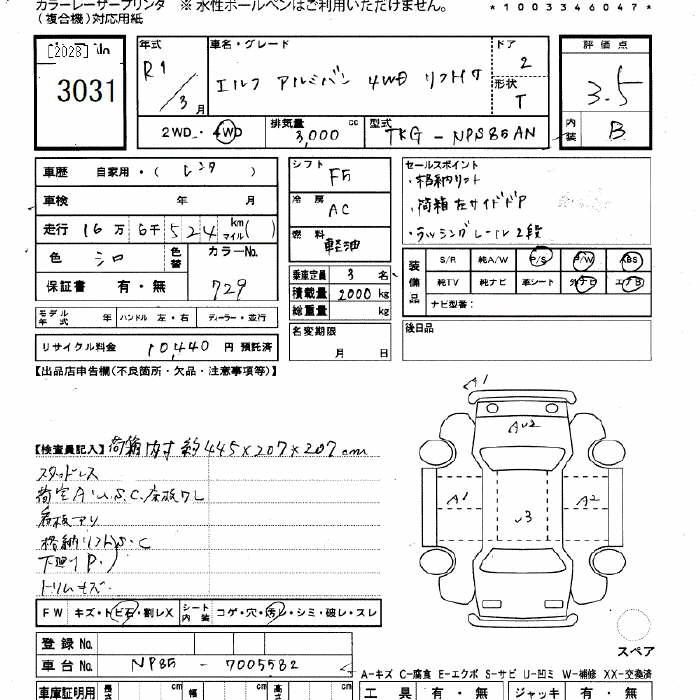 カラーレーザープリンタ ※水性ボールペンはご利用いただけません。
(複合機)対応用紙
*1003346047*
[2028]
3031
年式 R1/3月
車名・グレード エルフ アルミバン 4WD リフト付
ドア 2
形状 T
2WD・4WD 排気量 3,000 cc 型式 TKG-NPS85AN
評価点 3.5
内装 B
車歴 自家用・(レンタ)
車検 年 月
走行 16万6千524 km マイル( )
色 シロ 色替 カラーNo. 729
保証書 有・無
モデル年式 年 ハンドル 左・右 ディーラー・並行
リサイクル料金 10,440 円 預託済
シフト F5
冷房 AC
燃料 軽油
乗車定員 3 名
積載量 2000 kg
総重量 kg
名変期限
月 日
セールスポイント
・格納リフト
・荷箱左サイドドア
・ラッシングレール2段
装備品 S/R 純A/W P/S P/W ABS
純TV 純ナビ 革シート 外ナビ エアB
ナビ型番:
後日品
【出品店申告欄(不良箇所・欠品・注意事項等)】
【検査員記入】荷箱内寸 約445×207×207cm
スタッドレス
荷室A.U.S.C.床板ワレ
看板アリ
格納リフトS・C
トリムキズ
FW キズ・トビ石・割レX シート内装 コゲ・穴・汚レ・シミ・破レ・スレ
登録No.
車台No. NP85-7005582
車庫証明用 長さ cm 幅 cm 高さ cm
A1
A1
A2
スペア
A-キズ C-腐食 E-エクボ S-サビ U-凹ミ W-補修 XX-交換済
工具 有・無 ジャッキ 有・無